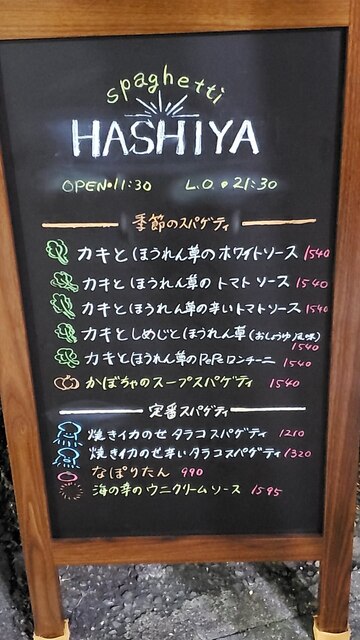 spaghetti
HASHIYA
OPEN•11:30 L.O.•21:30
季節のスパゲティ
カキとほうれん草のホワイトソース 1540
カキとほうれん草のトマトソース 1540
カキとほうれん草の辛いトマトソース 1540
カキとしめじとほうれん草(おしょうゆ風味) 1540
カキとほうれん草のPePeロンチーニ 1540
かぼちゃのスープスパゲティ 1540
定番スパゲティ
焼きイカのせタラコスパゲティ 1210
焼きイカのせ辛いタラコスパゲティ 1320
なぽりたん 990
海の幸のウニクリームソース 1595